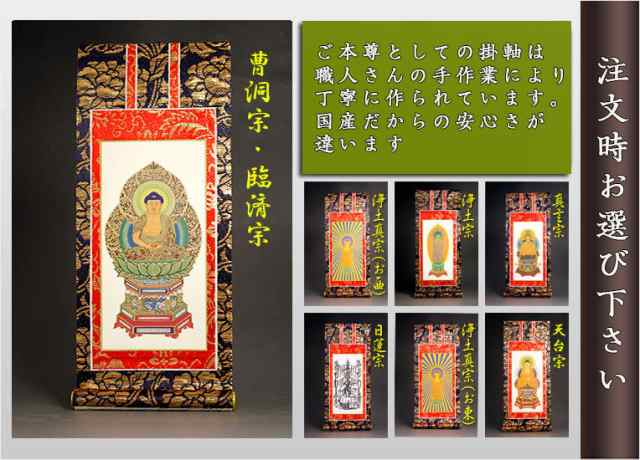 ご本尊としての掛軸は
職人さんの手作業により
丁寧に作られています。
国産だからの安心さが
違います
曹洞宗・臨済宗
浄土真宗(お西)
浄土宗
真言宗
日蓮宗
浄土真宗(お東)
天台宗
注文時お選び下さい